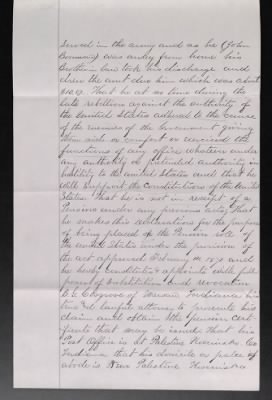 served in the army and as he (John
) was away from home his
Brother in law took his discharge and
drew the amt due him which was about
That he at no time during the
late rebellion against the authority of
the United States adhered to the cause
of the enemies of the Government giving
them aid or comfort or exercised the
functions of any office whatever under
any authority or pretended authority in
hostility to the United States and that he
will support the Constitution of the United
States That he is not in receipt of a
Pension under any previous act that
he makes this declaration for the purpose
of being placed on the Pension roll of
the United States under the provision of
the act approved February 14 1871 and
he hereby constitutes & appoints with full
power of substitution and revocation
of Indiana his
true and lawful attorney to prosecute his
claim and obtain the Pension Cert
ificate that may be issued That his
Post Office is at Palestine Kosciusko Co
Indiana that his domicile or place of
abode is Near Palestine Kosciusko